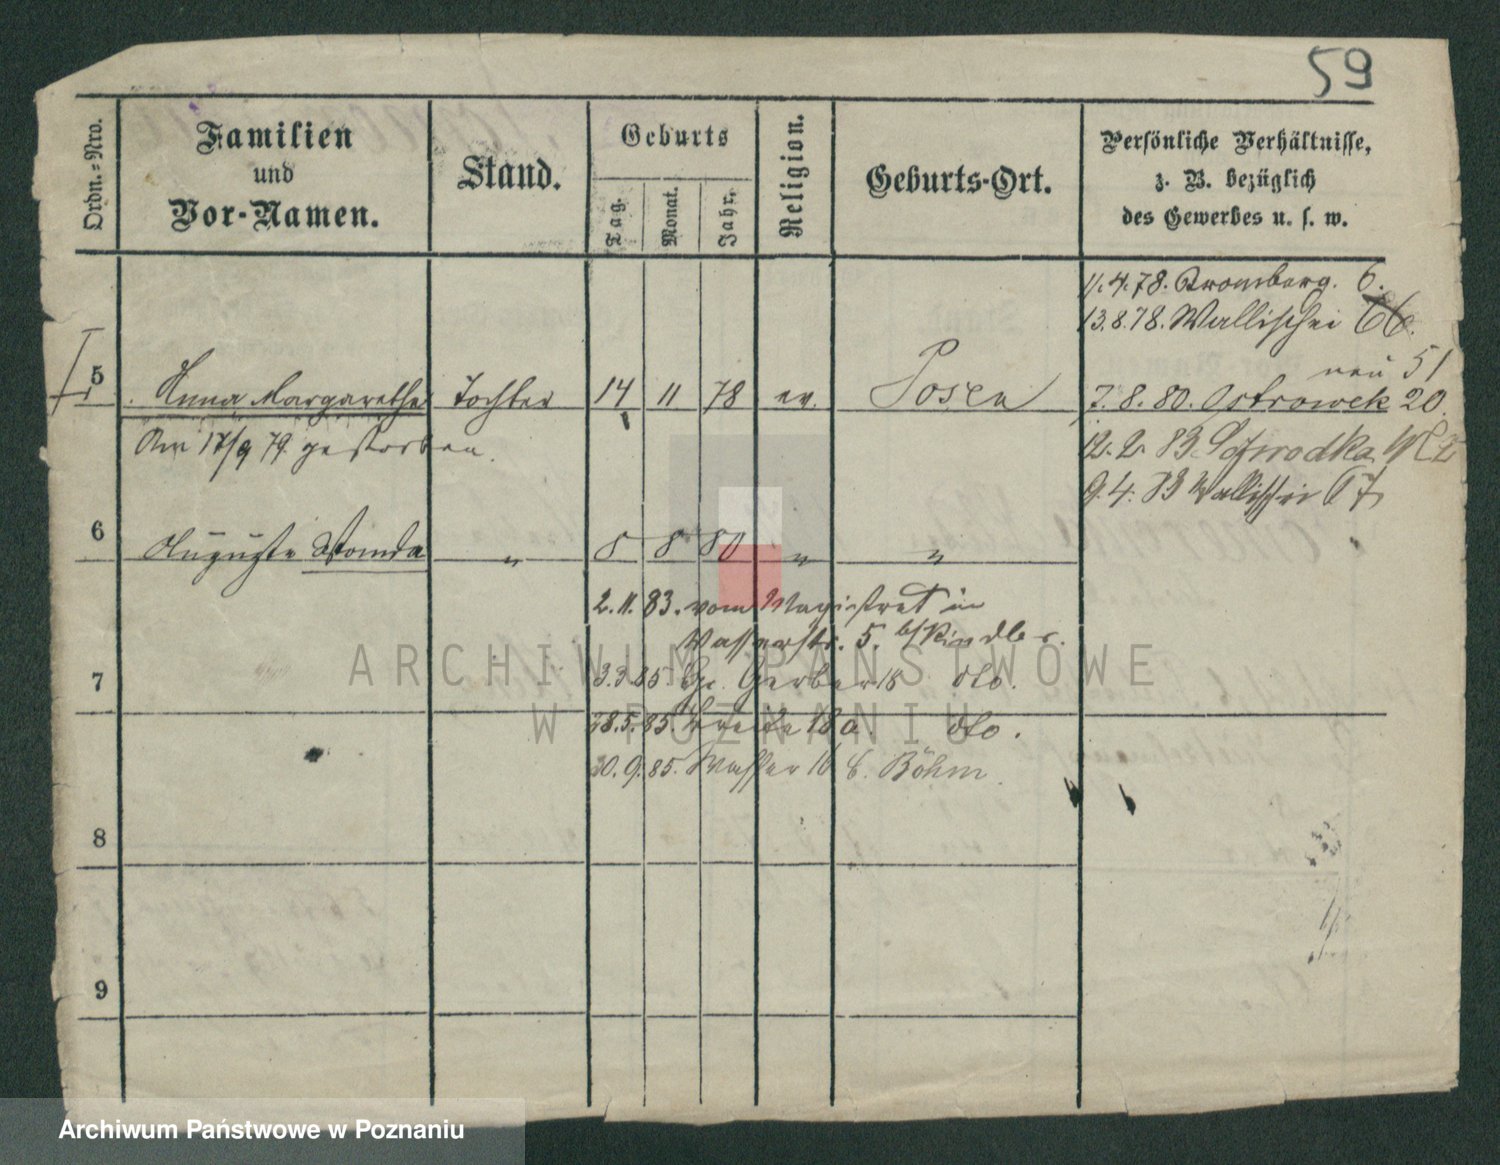 59
Ordn.-Nro.
Familien
und
Vor-Namen.
Stand.
Geburts
Tag.
Monat.
Jahr.
Religion.
Geburts-Ort.
Persönliche Verhältnisse,
z. B. bezüglich
des Gewerbes u. s. w.
11.4.78. Bromberg. 6.
13.8.78. Wallischei 66.
neu 51
5 Anna Margarethe Tochter 14 11 78 ev. Posen 7.8.80. Ostrowek 20.
Am 17/9 79 gestorben.
12.2.83. Schrodka 2
9.4.83 Wallischei 67
6 Auguste Wanda " 8 8 80 " "
2.11.83. vom Magistrat in
Wasserstr. 5. b/ Kindler.
7 3.3.85 Gr. Gerber 18 dto.
28.5.85. Breite 18a dto.
20.9.85. Wasser 16 b. Böhm.
8
9
ARCHIWUM PAŃSTWOWE
W POZNANIU
Archiwum Państwowe w Poznaniu